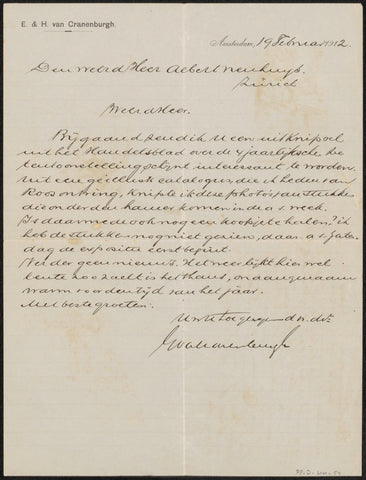 E. & H. van Cranenburgh.
Amsterdam, 19 Februari 1912
Den weled. Heer Albert Neuhuys
Zürich
Weled Heer.
Bijgaand zend ik U een uitknipsel
uit het Handelsblad over de 4 jaarlijksche. Die
tentoonstelling schijnt interessant te worden.
Uit een geïllustr. catalogus, die ik heden van
Roos ontving, knipte ik deze photo's, van stukken
die onder den hamer komen in de a.s. week.
Is daarmede ook nog een koopje te halen? ik
heb de stukken nog niet gezien, daar a.s. Zater-
dag de expositie eerst begint.
Verder geen nieuws. Het weer lijkt hier wel
lente zoo zacht is het thans, onaangenaam
warm voor den tijd van het jaar.
Met beste groeten.
Uw toegenegen